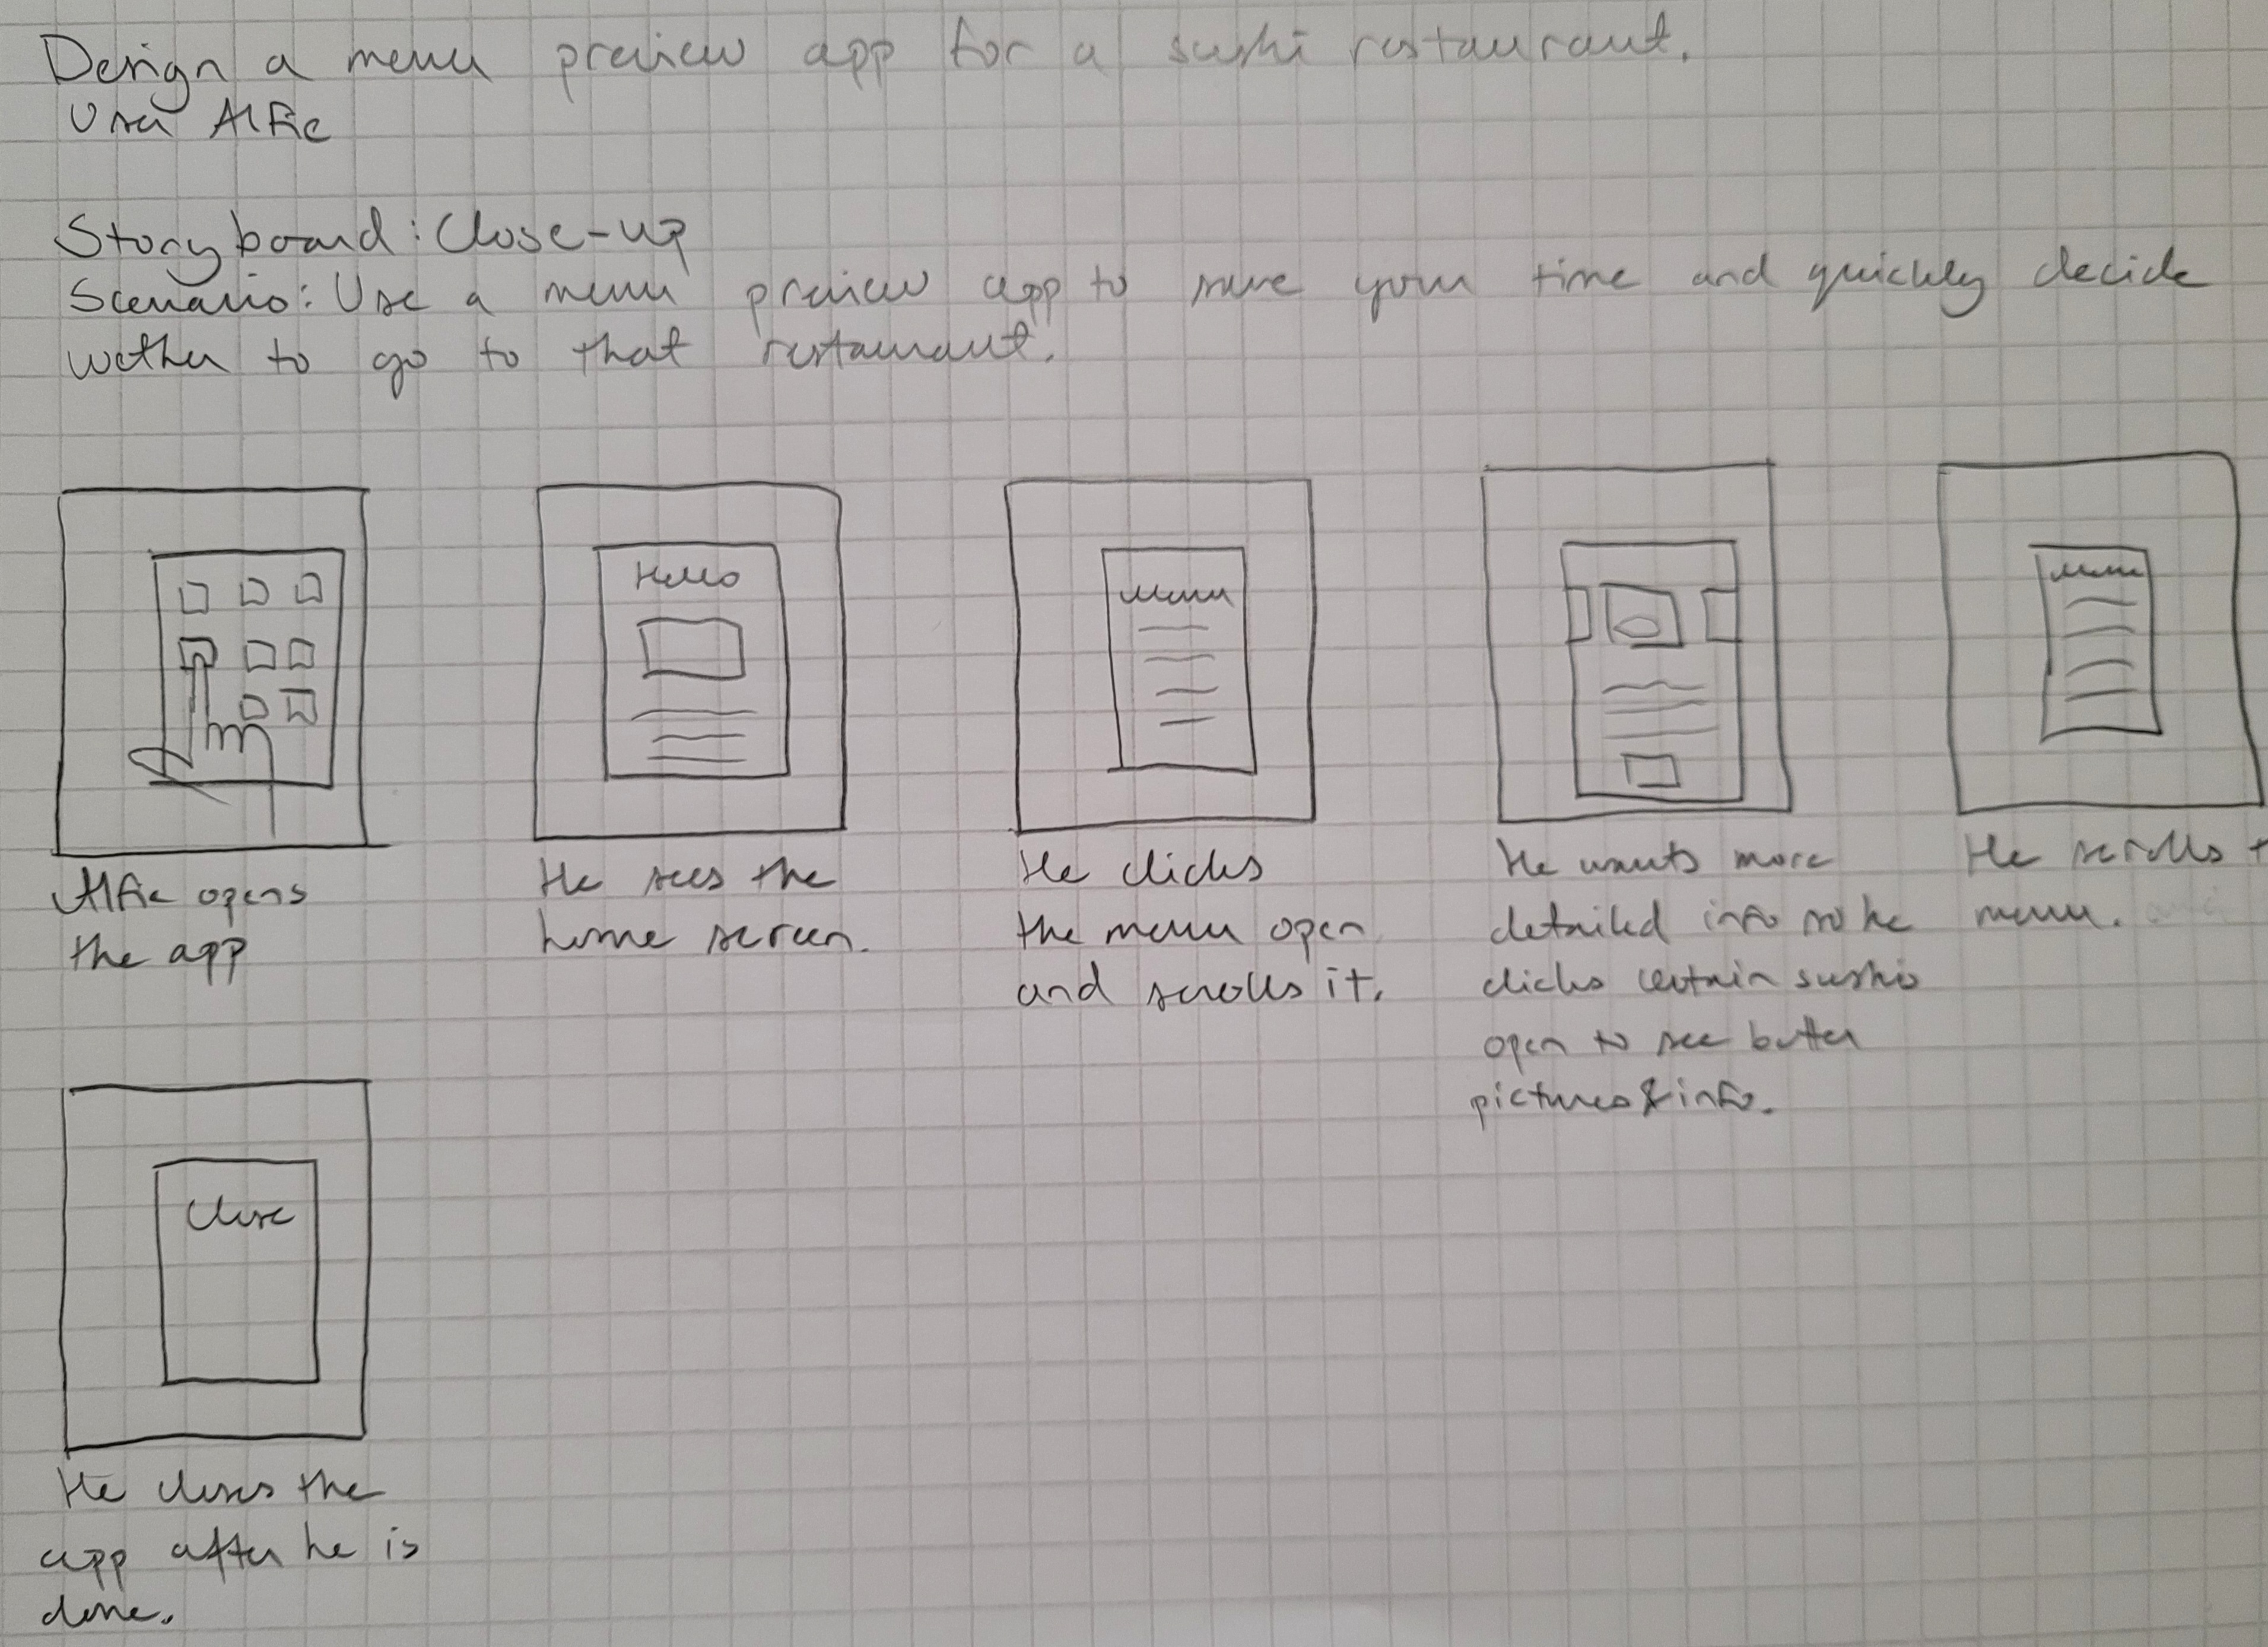 Design a menu preview app for a sushi restaurant.
User Alfie
Storyboard: Close-up
Scenario: Use a menu preview app to save your time and quickly decide
wether to go to that restaurant.
Hello
Menu
Menu
Alfie opens
the app
He sees the
home screen.
He clicks
the menu open
and scrolls it.
He wants more
detailed info so he
clicks certain sushis
open to see better
pictures & info.
He scrolls
menu.
Close
He closes the
app after he is
done.